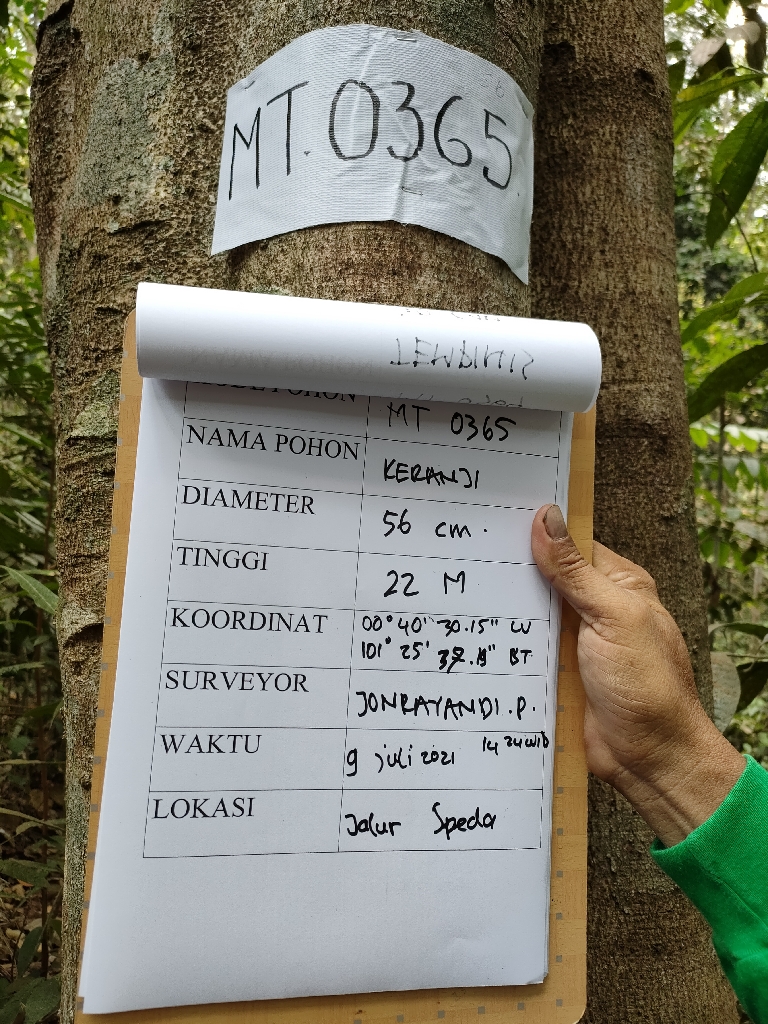 MT. 0365
KODE POHON MT 0365
NAMA POHON KERANJI
DIAMETER 56 cm.
TINGGI 22 M
KOORDINAT 00° 40' 30.15" LU
101° 25' BT
SURVEYOR JONRAYANDI.P.
WAKTU 9 juli 2021 14 24 WIB
LOKASI Jalur Speda